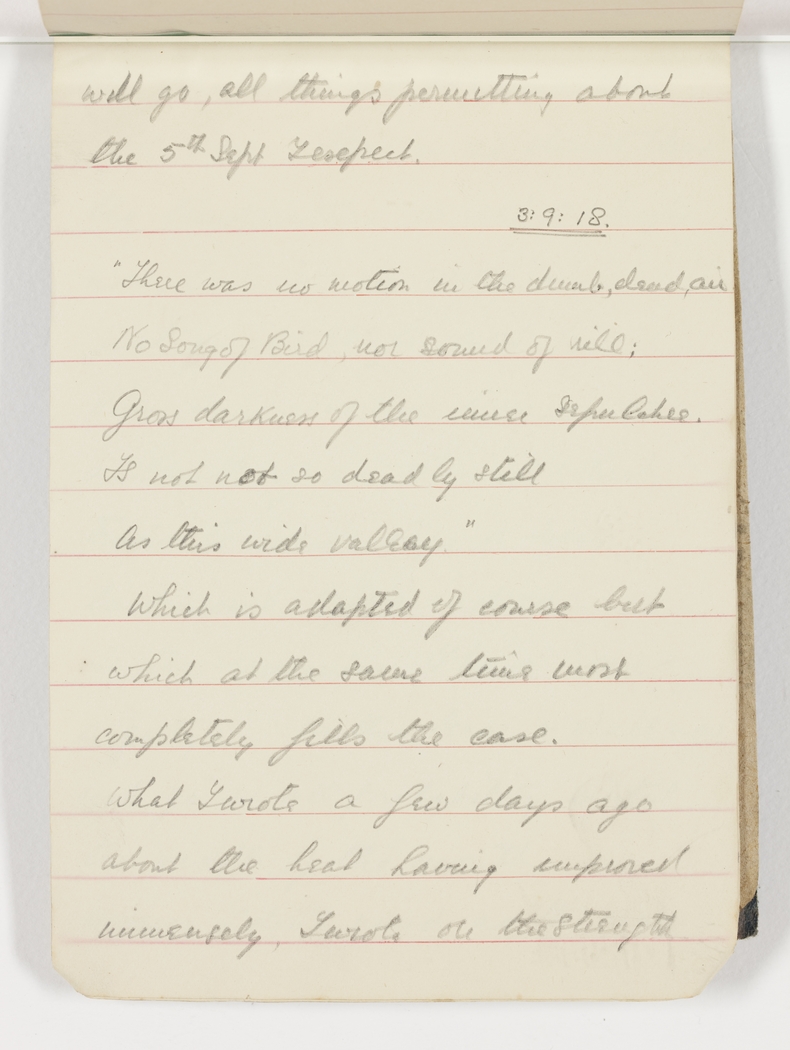 will go, all things permitting about
the 5th Sept I expect.
3:9:18.
"There was no motion in the dumb, dead, air
No Song of Bird, nor sound of rill;
Gross darkness of the inner sepulchre.
Is not not so deadly still
As this wide valley."
Which is adapted of course but
which at the same time most
completely fills the case.
What I wrote a few days ago
about the heat having improved
immensely, I wrote on the strength